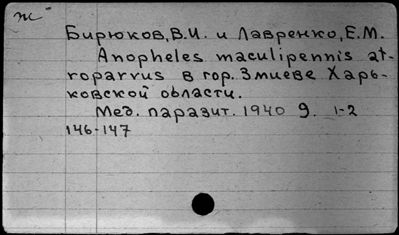 ж
Бирюков, В.И. и Лавренко, Е.М.
Anopheles maculipennis at-
roparvus в гор. Змиеве Харь-
ковской области.
Мед. паразит. 1940 9. 1-2
146-147